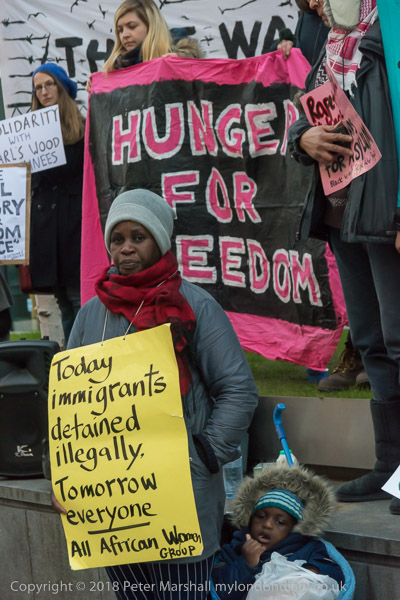 THE WA
SOLIDARITY
WITH
RL'S WOOD
NEES
HUNGER
FOR
FREEDOM
Today
immigrants
detained
illegally,
Tomorrow
everyone
All African Women
GROUP
Copyright © 2018 Peter Marshall mylondondiary.co.uk